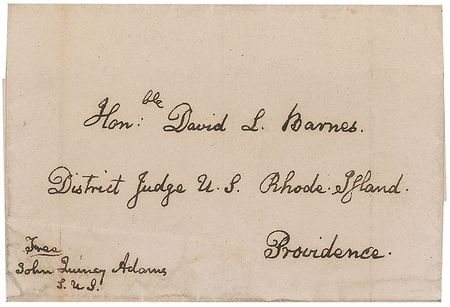 Hon:ble David L. Barnes.
District Judge U. S. Rhode-Island.
Providence.
Free
John Quincy Adams
S. U. S.